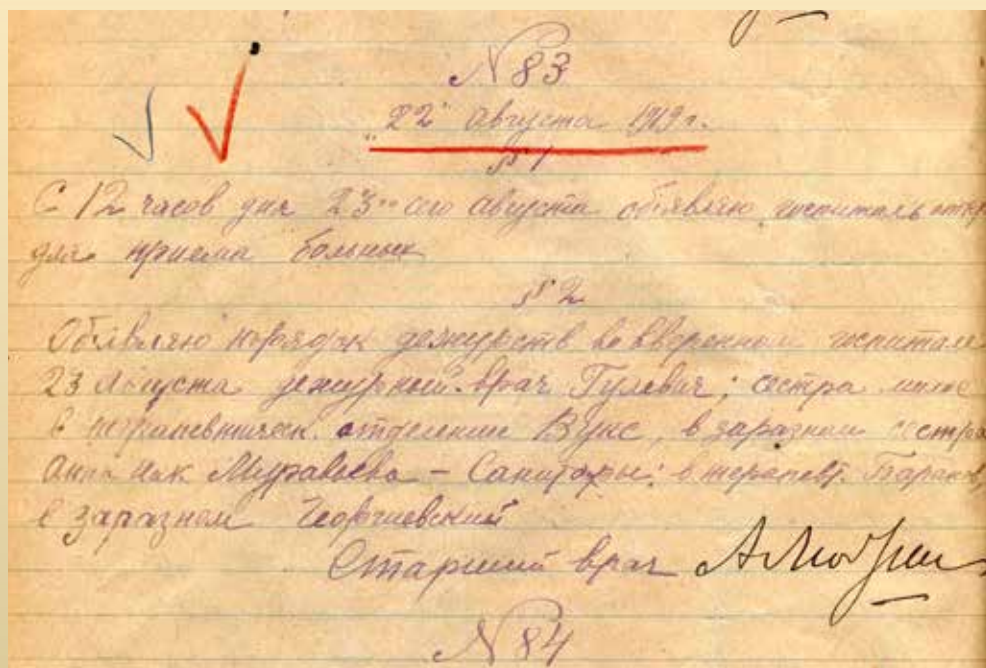 № 83
„22" Августа 1919 г.
§ 1
С 12 часов дня 23-го сего августа объявляю госпиталь откр
для приема больных
§ 2
Объявляю порядок дежурств во вверенном госпитале
23 Августа дежурный врач Гулевич; сестра
в терапевтическ. отделении Вукс, в заразном сестра
Анна Ник Муравьева – Санитары: в терапевт.
в заразном Георгиевский
Старший врач
№ 84